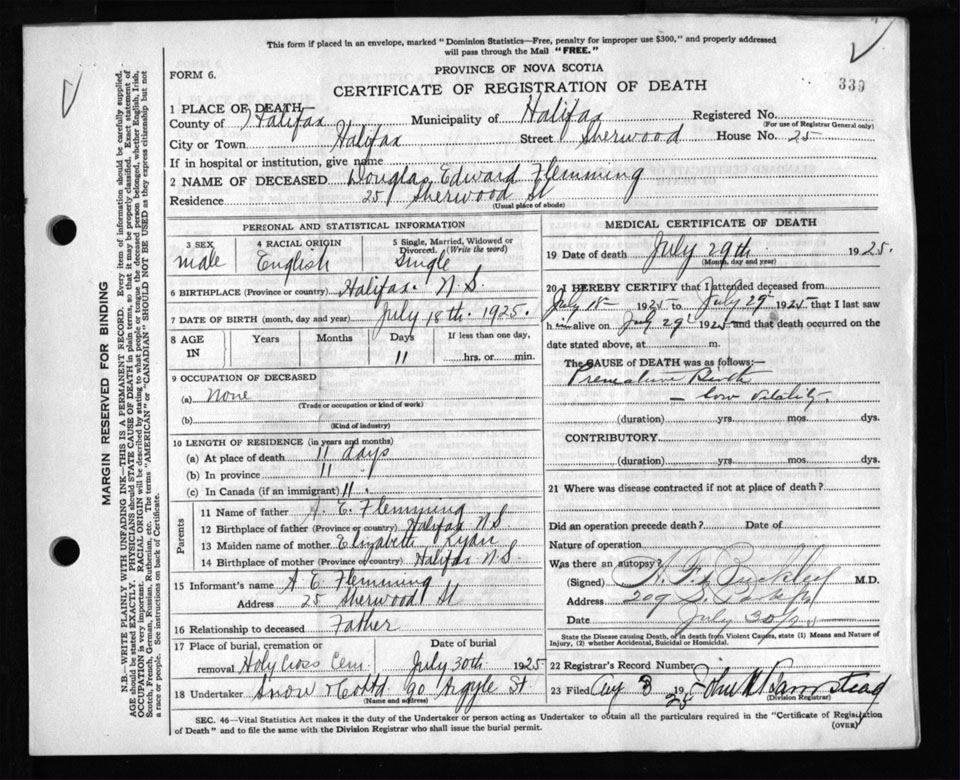 This form if placed in an envelope, marked "Dominion Statistics—Free, penalty for improper use $300," and properly addressed
will pass through the Mail "FREE."
PROVINCE OF NOVA SCOTIA
FORM 6.
CERTIFICATE OF REGISTRATION OF DEATH
339
1 PLACE OF DEATH—
County of Halifax Municipality of Halifax Registered No.
(For use of Registrar General only)
City or Town Halifax Street Sherwood House No. 25
If in hospital or institution, give name
2 NAME OF DECEASED Douglas Edward Flemming
Residence 25 Sherwood St
(Usual place of abode)
PERSONAL AND STATISTICAL INFORMATION
3 SEX 4 RACIAL ORIGIN 5 Single, Married, Widowed or
Divorced. (Write the word)
male English Single
6 BIRTHPLACE (Province or country) Halifax. N.S.
7 DATE OF BIRTH (month, day and year) July 18th. 1925.
8 AGE IN Years Months Days If less than one day,
11 hrs. or min.
9 OCCUPATION OF DECEASED
(a) None
(Trade or occupation or kind of work)
(b)
(Kind of industry)
10 LENGTH OF RESIDENCE (in years and months)
(a) At place of death 11 days
(b) In province 11 "
(c) In Canada (if an immigrant) 11 .
Parents
11 Name of father A. E. Flemming
12 Birthplace of father (Province or country) Halifax N.S.
13 Maiden name of mother Elizabeth Ryan
14 Birthplace of mother (Province or country) Halifax N.S.
15 Informant's name A E. Flemming
Address 25 Sherwood St
16 Relationship to deceased Father
17 Place of burial, cremation or Date of burial
removal Holy Cross Cem July 30th 1925
18 Undertaker Snow & Co Ltd 90 Argyle St
(Name and address)
MEDICAL CERTIFICATE OF DEATH
19 Date of death July 29th 1925.
(Month, day and year)
20 I HEREBY CERTIFY that I attended deceased from
July 18 1925 to July 29 1925 that I last saw
him alive on July 29 1925 and that death occurred on the
date stated above, at m.
The CAUSE OF DEATH was as follows:—
Premature Birth
– low vitality.
(duration) yrs. mos. dys.
CONTRIBUTORY
(duration) yrs. mos. dys.
21 Where was disease contracted if not at place of death?
Did an operation precede death? Date of
Nature of operation
Was there an autopsy?
(Signed) Buckley M.D.
Address 209 S. Park St
Date July 30/25
State the Disease causing Death, or in death from Violent Causes, state (1) Means and Nature of
Injury, (2) whether Accidental, Suicidal or Homicidal.
22 Registrar's Record Number
23 Filed Aug 8 1925 John
(Division Registrar)
SEC. 46—Vital Statistics Act makes it the duty of the Undertaker or person acting as Undertaker to obtain all the particulars required in the "Certificate of Registration
of Death" and to file the same with the Division Registrar who shall issue the burial permit.
(OVER)
MARGIN RESERVED FOR BINDING
N.B.—WRITE PLAINLY WITH UNFADING INK—THIS IS A PERMANENT RECORD. Every item of information should be carefully supplied.
AGE should be stated EXACTLY. PHYSICIANS should STATE CAUSE OF DEATH in plain terms, so that it may be properly classified. Exact statement of
OCCUPATION is very important. RACIAL ORIGIN will be described by stating to what people or tongue the deceased person belonged, whether English, Irish,
Scotch, French, German, Russian, Ruthenian, etc. The terms "AMERICAN" or "CANADIAN" SHOULD NOT BE USED as they express citizenship but not
a race or people. See instructions on back of Certificate.